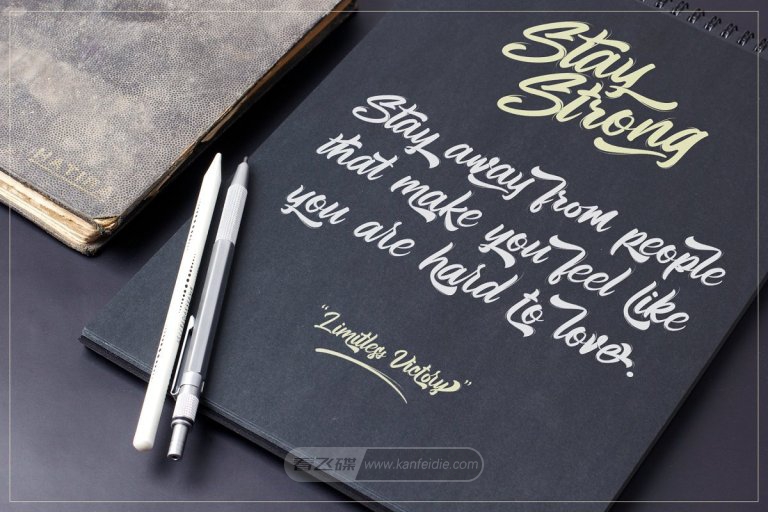 Stay
Strong
Stay away from people
that make you feel like
you are hard to love.
"Limitless Victory"
看飞碟 www.kanfeidie.com